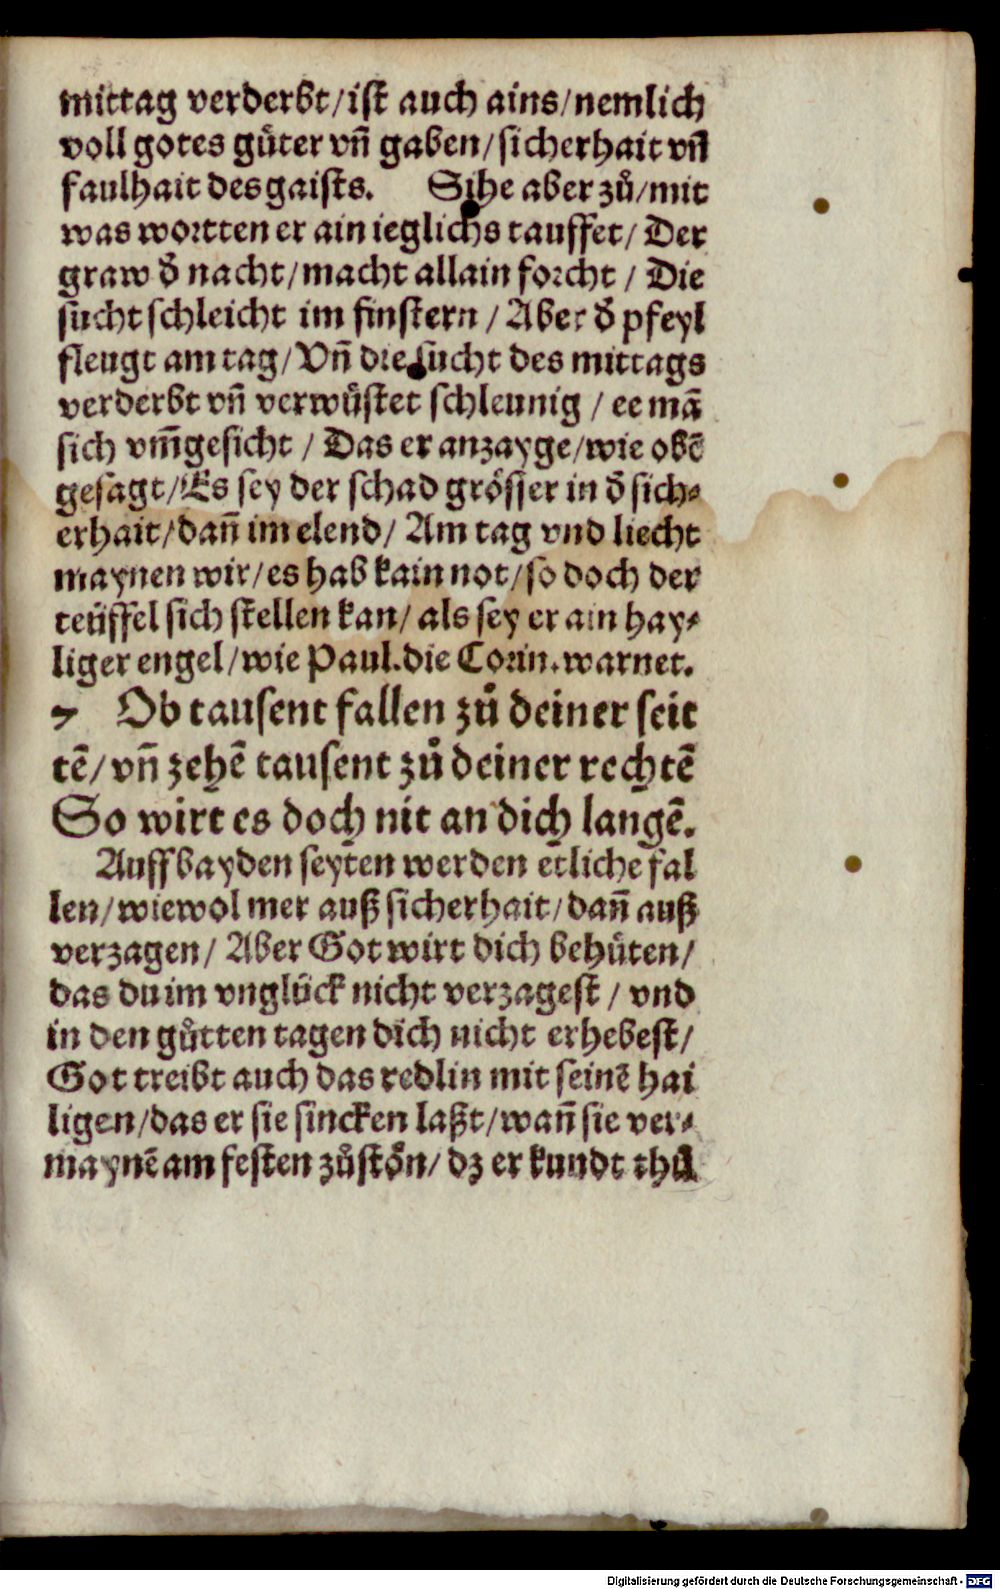 mittag verderbt/ist auch ains/nemlich
voll gotes gůter vñ gaben/sicherhait vñ
faulhait des gaists. Sihe aber zů/mit
was wortten er ain ieglichs tauffet/ Der
graw d̄ nacht/macht allain forcht / Die
sucht schleicht im finstern / Aber d̄ pfeyl
fleugt am tag/Vñ die sucht des mittags
verderbt vñ verwůstet schleunig / ee mā
sich vm̄gesicht / Das er anzayge/wie obē
gesagt/Es sey der schad grösser in d̄ sich⸗
erhait/dañ im elend/ Am tag vnd liecht
maynen wir/es hab kain not/so doch der
teüffel sich stellen kan/ als sey er ain hay⸗
liger engel/wie Paul.die Corin.warnet.
7 Ob tausent fallen zů deiner seit
tē/vñ zehē tausent zů deiner rechtē
So wirt es doch nit an dich langē.
Auff bayden seyten werden etliche fal
len/wiewol mer auß sicherhait/dañ auß
verzagen/ Aber Got wirt dich behüten/
das du im vnglück nicht verzagest / vnd
in den gůtten tagen dich nicht erhebest/
Got treibt auch das redlin mit seinē hai
ligen/das er sie sincken laßt/wañ sie ver⸗
maynē am festen zůstōn/dz er kundt thů
Digitalisierung gefördert durch die Deutsche Forschungsgemeinschaft - DFG